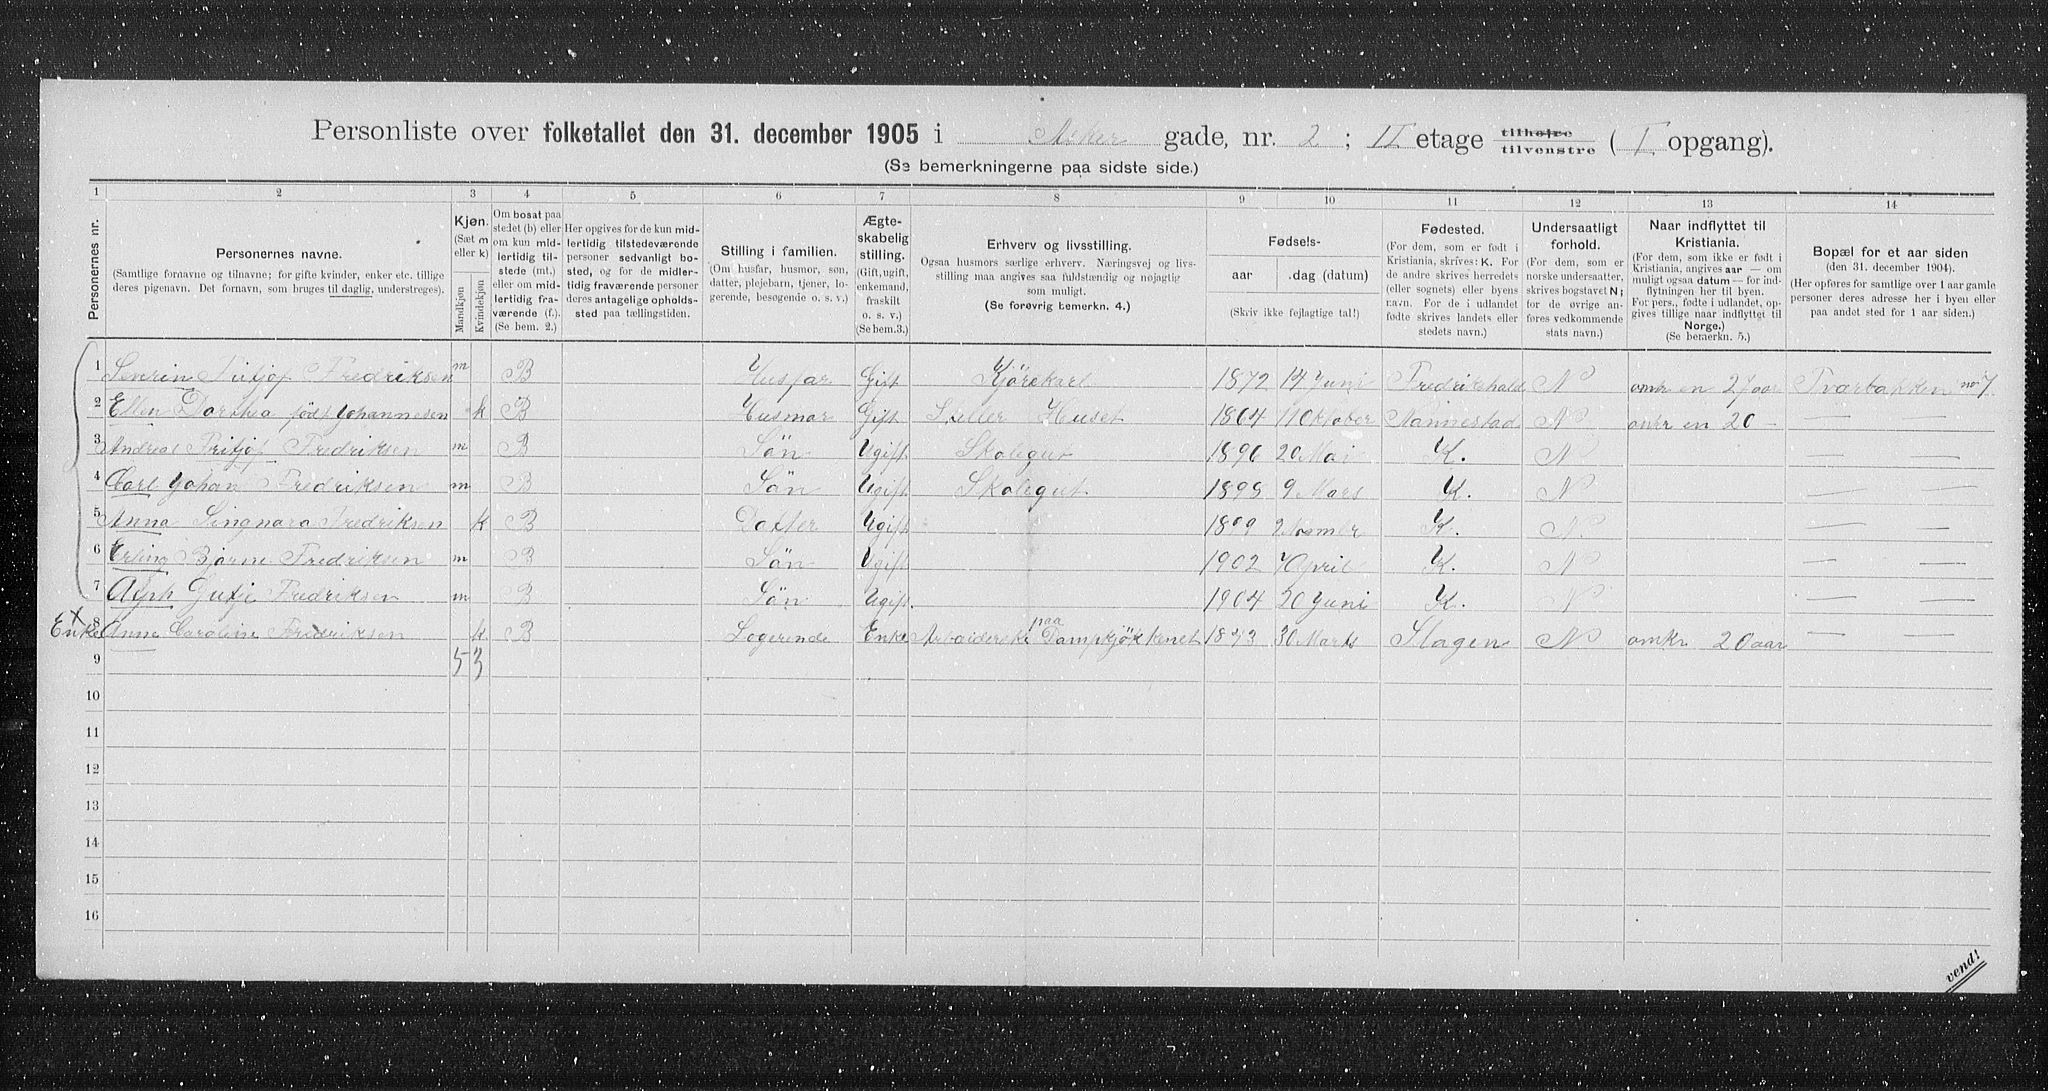 Personliste over folketallet den 31. december 1905 i Asker gade, nr. 2 ; II etage tilhøire tilvenstre ( I opgang).
(Se bemerkningerne paa sidste side.)
1 2 3 4 5 6 7 8 9 10 11 12 13 14
Personernes nr.
Personernes navne.
(Samtlige fornavne og tilnavne; for gifte kvinder, enker etc. tillige
deres pigenavn. Det fornavn, som bruges til daglig, understreges).
Kjøn.
(Sæt m
eller k)
Mandkjøn
Kvindekjøn
Om bosat paa
stedet (b) eller
om kun mid-
lertidig til-
stede (mt.)
eller om mid-
lertidig fra-
værende (f.)
(Se bem. 2.)
Her opgives for de kun mid-
lertidig tilstedeværende
personer sedvanlig bo-
sted, og for de midler-
tidig fraværende personer
deres antagelige opholds-
sted paa tællingstiden.
Stilling i familien.
(Om husfar, husmor, søn,
datter, plejebarn, tjener, lo-
gerende, besøgende o. s. v.)
Ægte-
skabelig
stilling.
(Gift, ugift,
enkemand,
fraskilt
o. s. v.)
(Se bem.3.)
Erhverv og livsstilling.
Ogsaa husmors særlige erhverv. Næringsvej og livs-
stilling maa angives saa fuldstændig og nøjagtig
som muligt.
(Se forøvrig bemerkn. 4.)
Fødsels-
aar
dag (datum)
(Skriv ikke fejlagtige tal!)
Fødested.
(For dem, som er født i
Kristiania, skrives: K. For
de andre skrives herredets
(eller sognets) eller byens
navn. For de i udlandet
fødte skrives landets eller
stedets navn.)
Undersaatligt
forhold.
(For dem, som er
norske undersaatter,
skrives bogstavet N;
for de øvrige an-
føres vedkommende
stats navn.)
Naar indflyttet til
Kristiania.
(For dem, som ikke er født i
Kristiania, angives aar — om
muligt ogsaa datum — for ind-
flytningen her til byen.
For pers., fødte i udlandet, op-
gives tillige naar indflyttet til
Norge.)
(Se bemerkn. 5.)
Bopæl for et aar siden
(den 31. december 1904.)
(Her opføres for samtlige over 1 aar gamle
personer deres adresse her i byen eller
paa andet sted for 1 aar siden.)
1 Severin Fritjof Fredriksen m B Husfar Gift Kjørekarl 1872 14 Juni Fredrikshald N omkr en 27 aar Tværbakken no 7
2 Ellen Dorthea født Johannesen k B Husmor Gift Steller Huset 1864 11 Oktober Nannestad N omkr en 20 — — —
3 Andreas Fritjof Fredriksen m B Sön Ugift Skolegut 1896 20 Mai K. N — —
4 Carl Johan Fredriksen m B Sön Ugift Skolegut 1898 9 Mars K. N — —
5 Anna Singnora Fredriksen k B Dotter Ugift 1899 2 K. N. — —
6 Erling Bjarne Fredriksen m B Sön Ugift 1902 7 April K. N — —
7 Alph Fredriksen m B Sön Ugift. 1904 20 Juni K. N — —
Enke 8 Anne Caroline Fredriksen k B Logerende Enke Arbaiderske paa Dampkjøkkenet 1843 30 Marts Slagen N omkr 20 aar — —
9 5 3
10
11
12
13
14
15
16
vend!